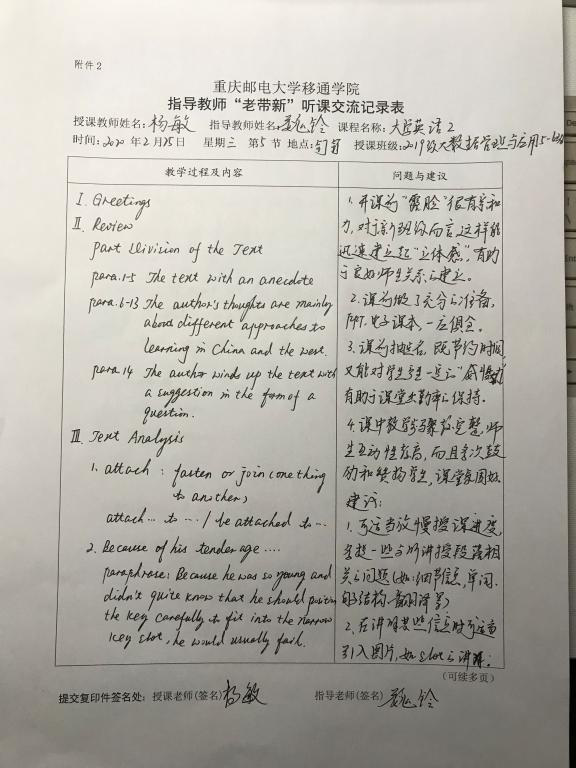 附件2
重庆邮电大学移通学院
指导教师“老带新”听课交流记录表
授课教师姓名:杨敏 指导教师姓名: 玲 课程名称:大学英语2
时间:2020年2月25日 星期三 第5节 地点: 授课班级:2019级大数据管理与应用5-6班
教学过程及内容
I. Greetings
II. Review
part Division of the Text
para.1-5 The text with an anecdote
para.6-13 The author's thoughts are mainly
about different approaches to
learning in China and the west.
para.14 The author winds up the text with
a suggestion in the form of a
question.
III. Text Analysis
1. attach : fasten or join one thing
to another;
attach… to … / be attached to …
2. Because of his tender age ….
paraphrase: Because he was so young and
didn't quite know that he should position
the key carefully to fit into the narrow
key slot, he would usually fail.
问题与建议
1. 开课前“露脸”很有亲和
力,对于新班级而言,这样能
迅速建立起“立体感”,有助
于良好师生关系之建立。
2. 课前做了充分之准备,
PPT、电子课本,一应俱全。
3. 课前抽点名,既节约时间,
又能对学生 一定之“威慑力”
有助于课堂出勤率之保持。
4. 课中教学步骤较完整,师
生互动性较高,而且多次鼓
励和赞扬学生,课堂氛围好
建议:
1. 可适当放慢授课进度,
多提一些与所讲授段落相
关之问题(如:细节信息,单词、
句子结构、翻译等)
2. 在讲解某些信息时可适当
引入图片,如slot之讲解;
(可续多页)
提交复印件签名处:授课老师(签名) 杨敏 指导老师(签名) 玲